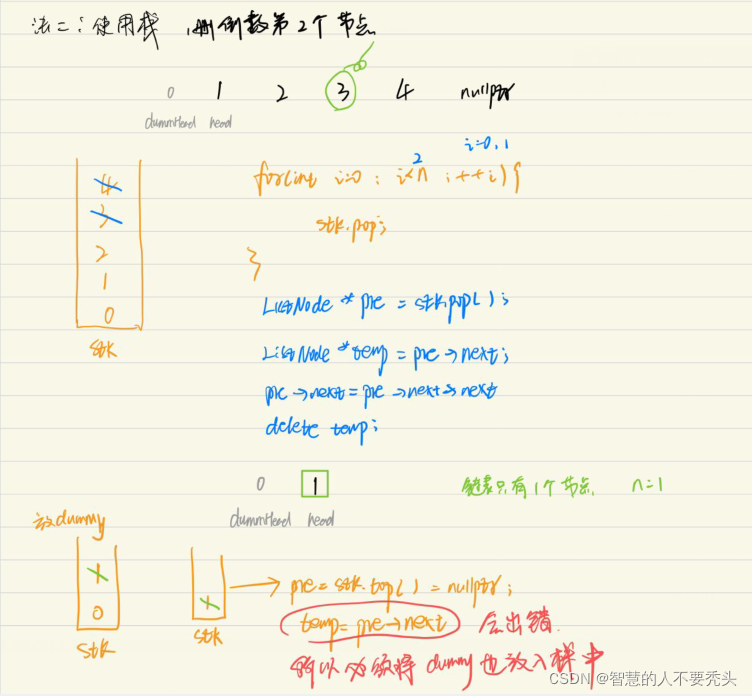 法二：使用栈，删倒数第2个节点
0 1 2 3 4 nullptr
dummHead head
i=0,1
2
for(int i=0; i<n; ++i){
stk.pop;
}
4
3
2
1
0
stk
ListNode * pre = stk.pop();
ListNode *temp = pre→next;
pre→next = pre→next→next
delete temp;
0 1
链表只有1个节点 n=1
dummHead head
放dummy
1
0
stk
1
stk
pre = stk.top() = nullptr;
temp = pre→next 会出错
所以必须将dummy也放入栈中
CSDN @智慧的人不要秃头